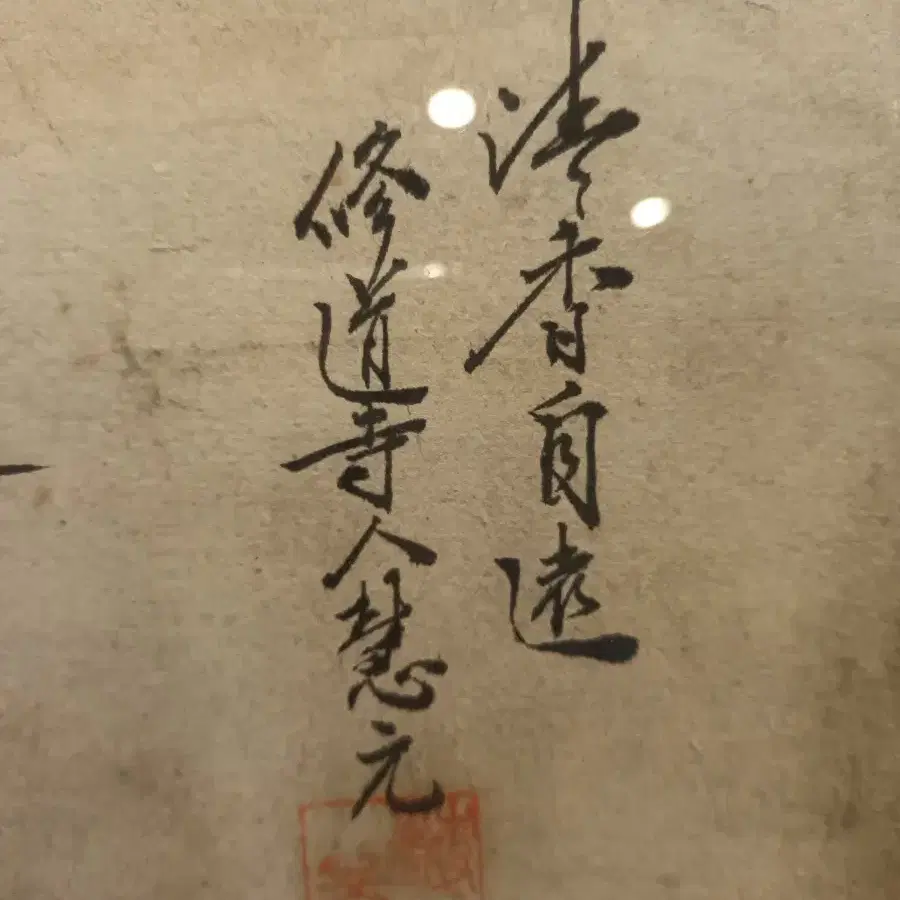 清香自遠
修道寺人慧元